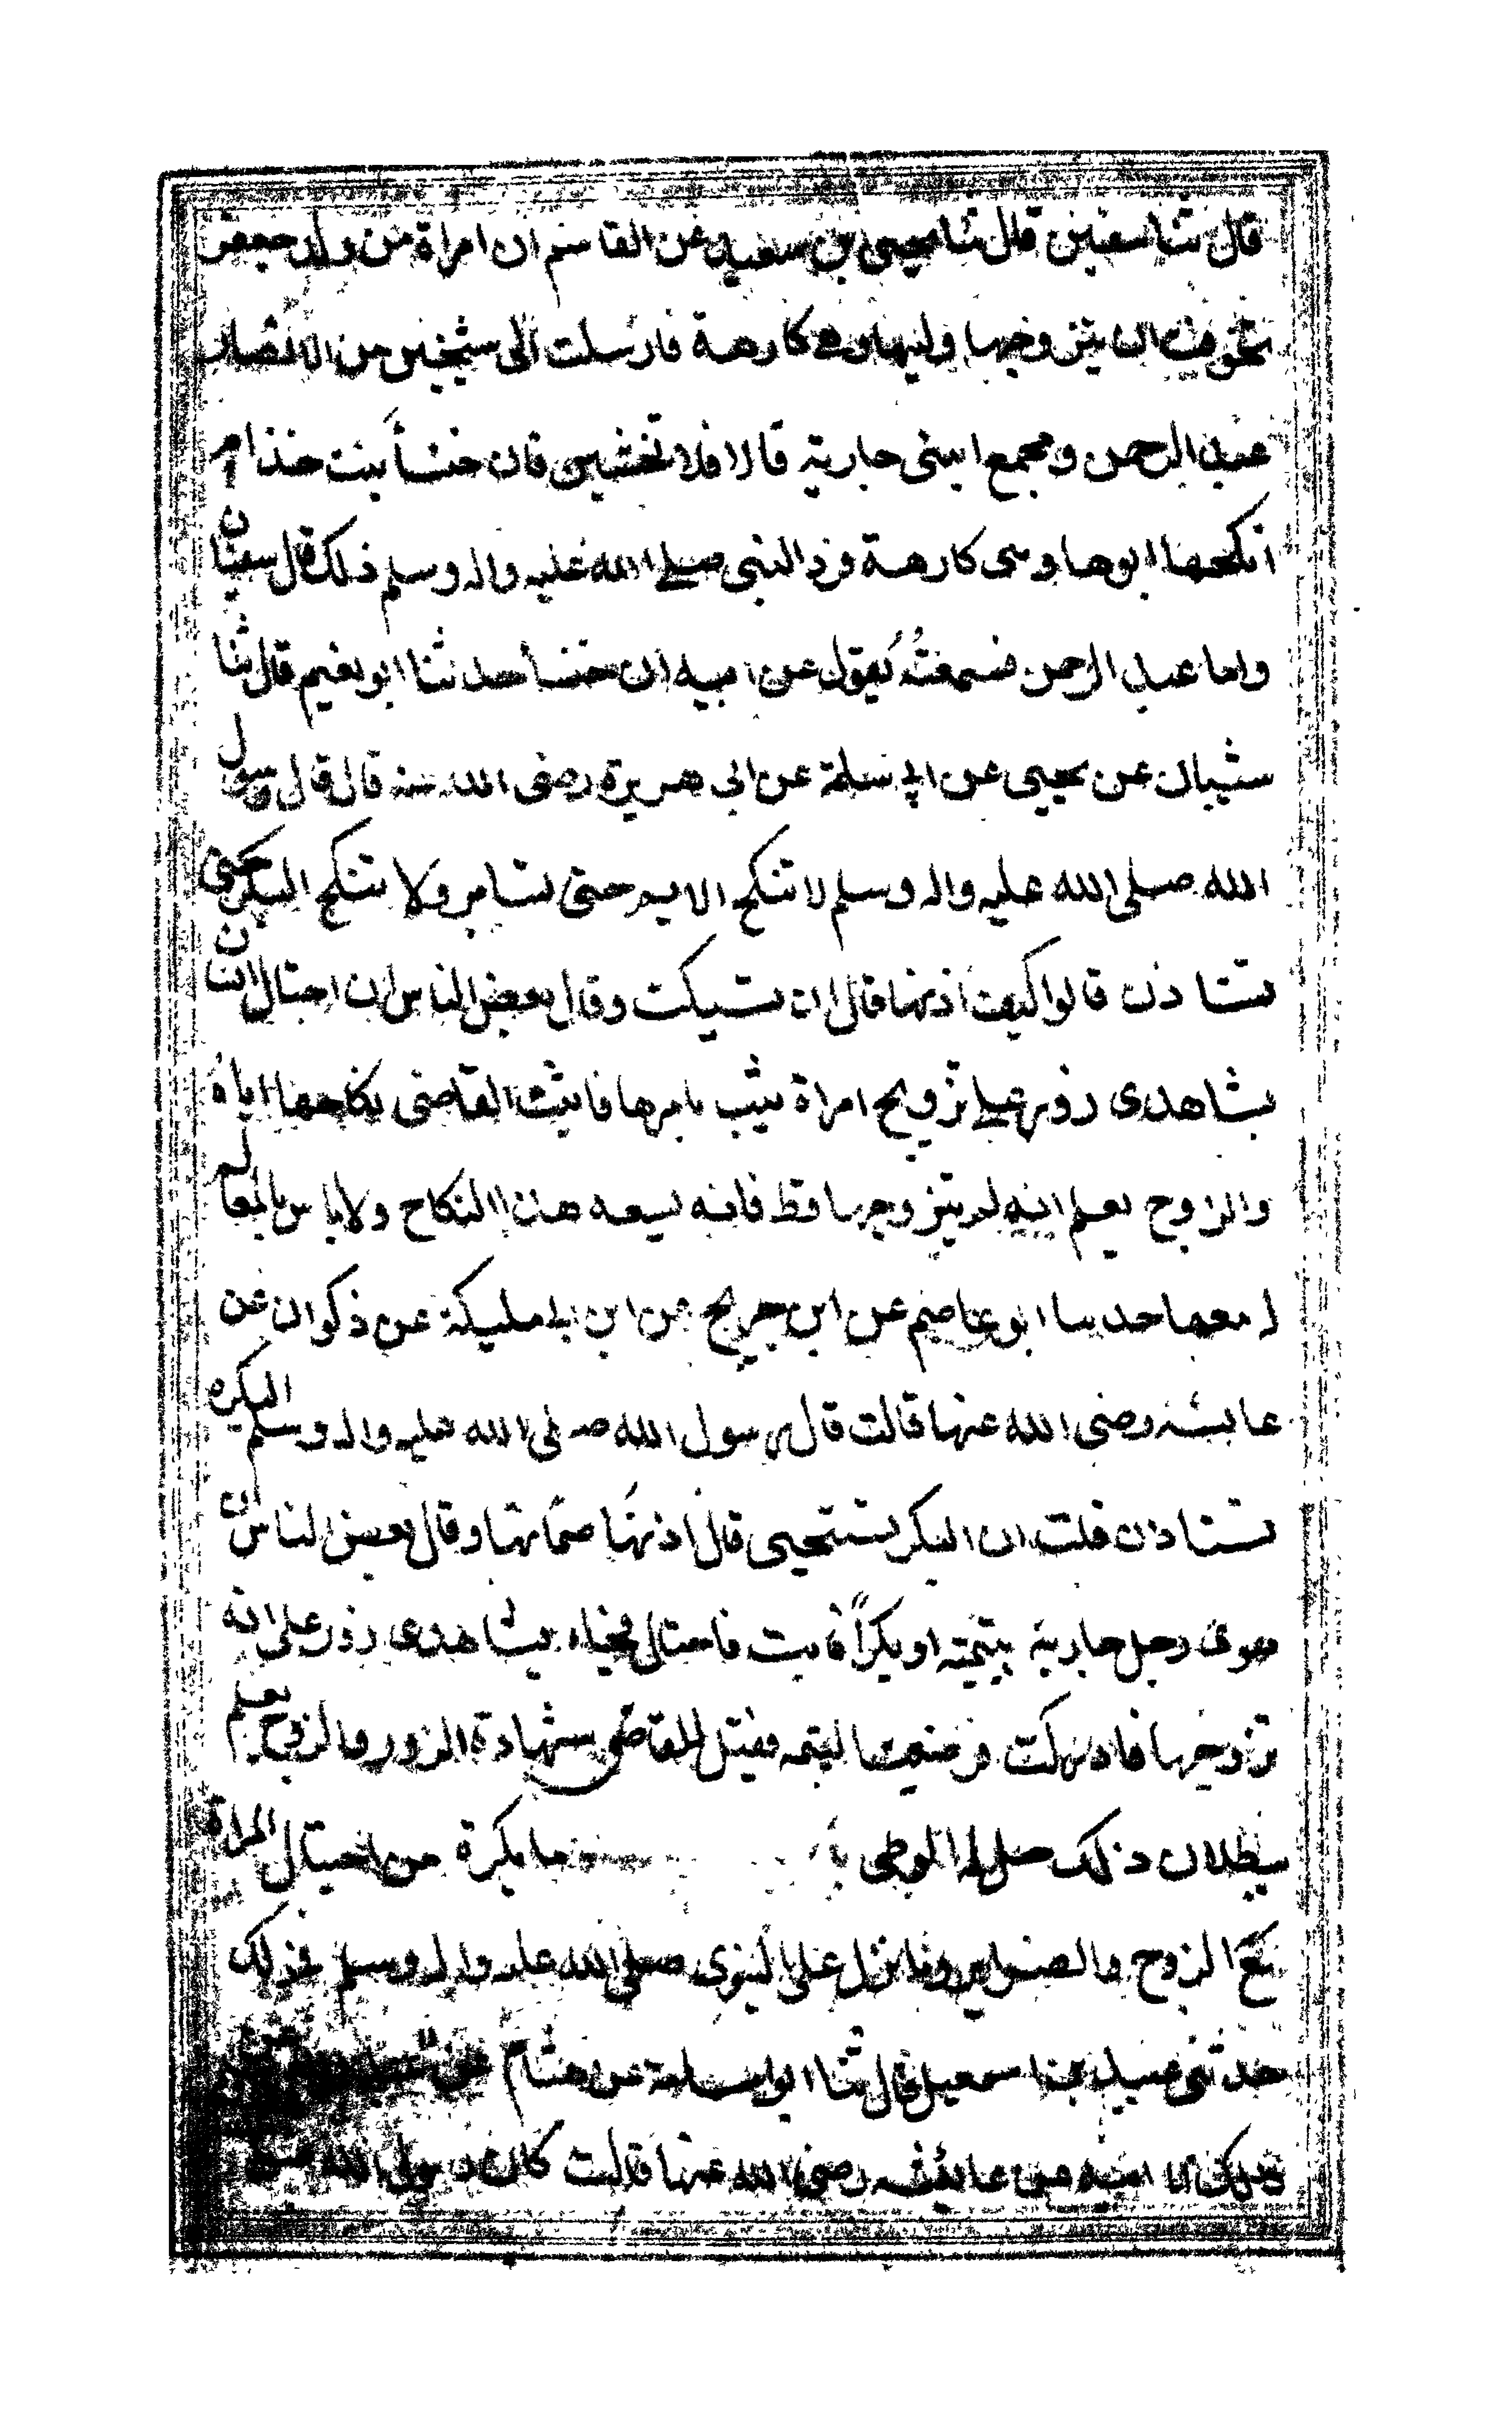 قال ثنا سفين قال ثنا يحيى بن سعيد عن القاسم ان امراة من ولد جعفر
تخوفت ان يتزوجها وليها وهى كارهة فارسلت الى شيخين من الانصار
عبد الرحمن ومجمع ابنى جارية قالا فلا تخشين فان خنسأ بنت خذام
انكحها ابوها وهى كارهة فرد النبى صلى الله عليه واله وسلم ذلك قال سفيان
واما عبد الرحمن فسمعتُه يُقول عن ابيه ان خنسأ حدثنا ابو نعيم قال ثنا
شيبان عن يحيى عن ابى سلمة عن ابى هريرة رضى الله عنه قال قال رسول
الله صلى الله عليه واله وسلم لا تنكح الايم حتى تستامر ولا تنكح البكر حتى
تستاذن قالوا كيف اذنها قال ان تسكت وقال بعض الناس ان احتال انسان
بشاهدى زور على تزويج امراة ثيب بامرها فاثبت القاضى نكاحها اياه
والزوج يعلم انه لم يتزوجها قط فانه يسعه هذا النكاح ولا باس بالمقام
له معها حدثنا ابو عاصم عن ابن جريج عن ابن ابى مليكة عن ذكوان عن
عايشة رضى الله عنها قالت قال رسول الله صلى الله عليه واله وسلم البكر
تستاذن قلت ان البكر تستحيى قال اذنها صماتها وقال بعض الناس ان
هوى رجل جارية يتيمة او بكراً فابت فاحتال فجاء بشاهدى زور على انه
تزوجها فادركت فرضيت اليتيمه فقبل القاضى شهادة الزور والزوج يعلم
ببطلان ذلك حل له الوطى با ما يكره من احتيال المراة
مع الزوج والضراير وما نزل على النبى صلى الله عليه واله وسلم فى ذلك
حدثنى عبيد بن اسمعيل قال ثنا ابو اسامة عن هشام عن
ابيه عن عايشه رضى الله عنها قالت كان رسول الله صلى